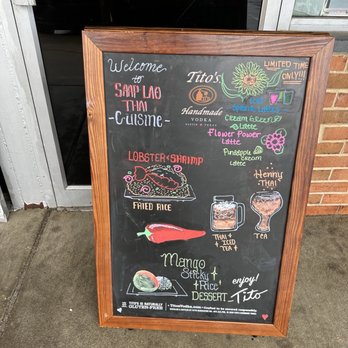 Welcome
to
SAAP LAO
THAI
-Cuisine-
Tito's
Handmade
VODKA
AUSTIN • TEXAS
LIMITED TIME
ONLY!!!
Latte
Flower Power
Latte
Pineapple
Latte
LOBSTER & SHRIMP
FRIED RICE
THAI
ICED
TEA
Henny
THAI
TEA
Mango
Sticky
Rice
DESSERT
enjoy!
Tito
TITO'S IS NATURALLY
GLUTEN-FREE